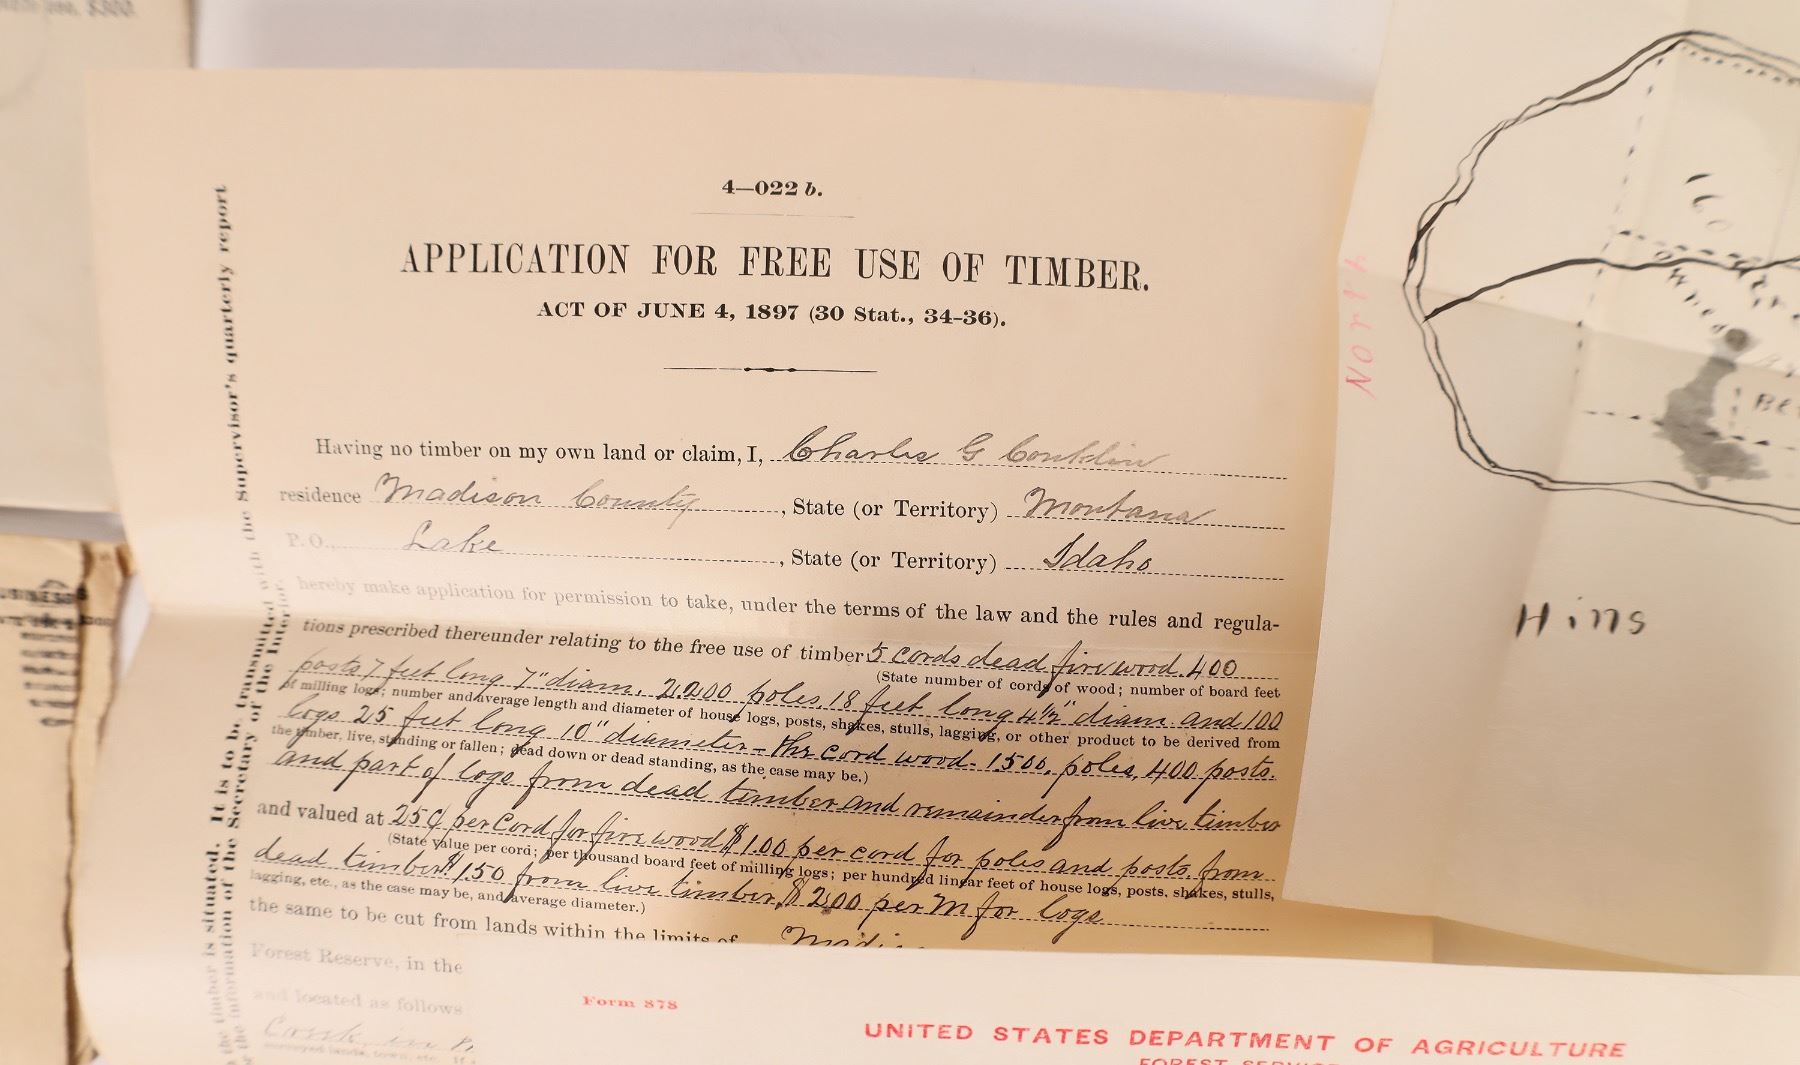 use, $300.
4—022 b.
APPLICATION FOR FREE USE OF TIMBER.
ACT OF JUNE 4, 1897 (30 Stat., 34-36).
Having no timber on my own land or claim, I, Charles G Conklin
residence Madison County, State (or Territory) Montana
P. O., Lake, State (or Territory) Idaho
hereby make application for permission to take, under the terms of the law and the rules and regula-
tions prescribed thereunder relating to the free use of timber 5 cords dead fire wood. 400
(State number of cords of wood; number of board feet
posts 7 feet long 7" diam. 2200 poles, 18 feet long 4½" diam. and 100
of milling logs; number and average length and diameter of house logs, posts, shakes, stulls, lagging, or other product to be derived from
logs 25 feet long 10" diameter - the cord wood. 1500, poles, 400 posts.
the timber, live, standing or fallen; dead down or dead standing, as the case may be.)
and part of logs from dead timber and remainder from live timber
and valued at 25¢ per Cord for fire wood $1.00 per cord for poles and posts, from
(State value per cord; per thousand board feet of milling logs; per hundred linear feet of house logs, posts, shakes, stulls,
dead timber $1.50 from live timber, $2.00 per M for logs
lagging, etc., as the case may be, and average diameter.)
the same to be cut from lands within the limits of
Forest Reserve, in the
and located as follows
It is to be transmitted with the Supervisor's quarterly report
the timber is situated.
the information of the Secretary of the Interior
Form 878
UNITED STATES DEPARTMENT OF AGRICULTURE
FOREST SERVICE
North
160
owned
Hills